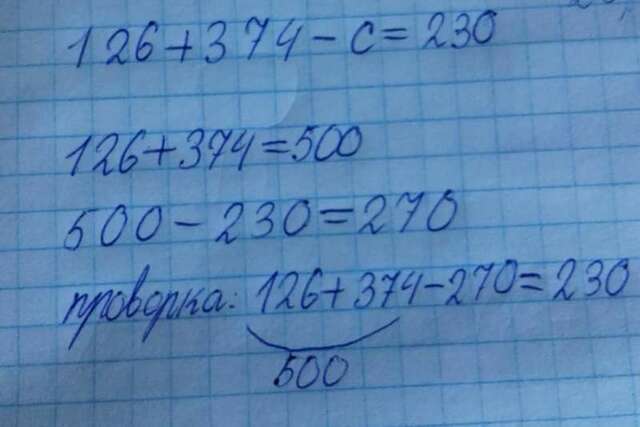 126+374-c=230
126+374=500
500-230=270
проверка: 126+374-270=230
500